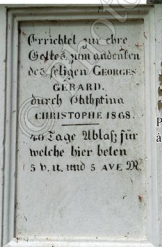 Errichtet zur ehre
Gottes zum andenken
des seligen GEORGES
GERARD.
durch
CHRISTOPHE 1868.
40 Tage Ablaß für
welche hier beten
5 V. u. und 5 AVE M